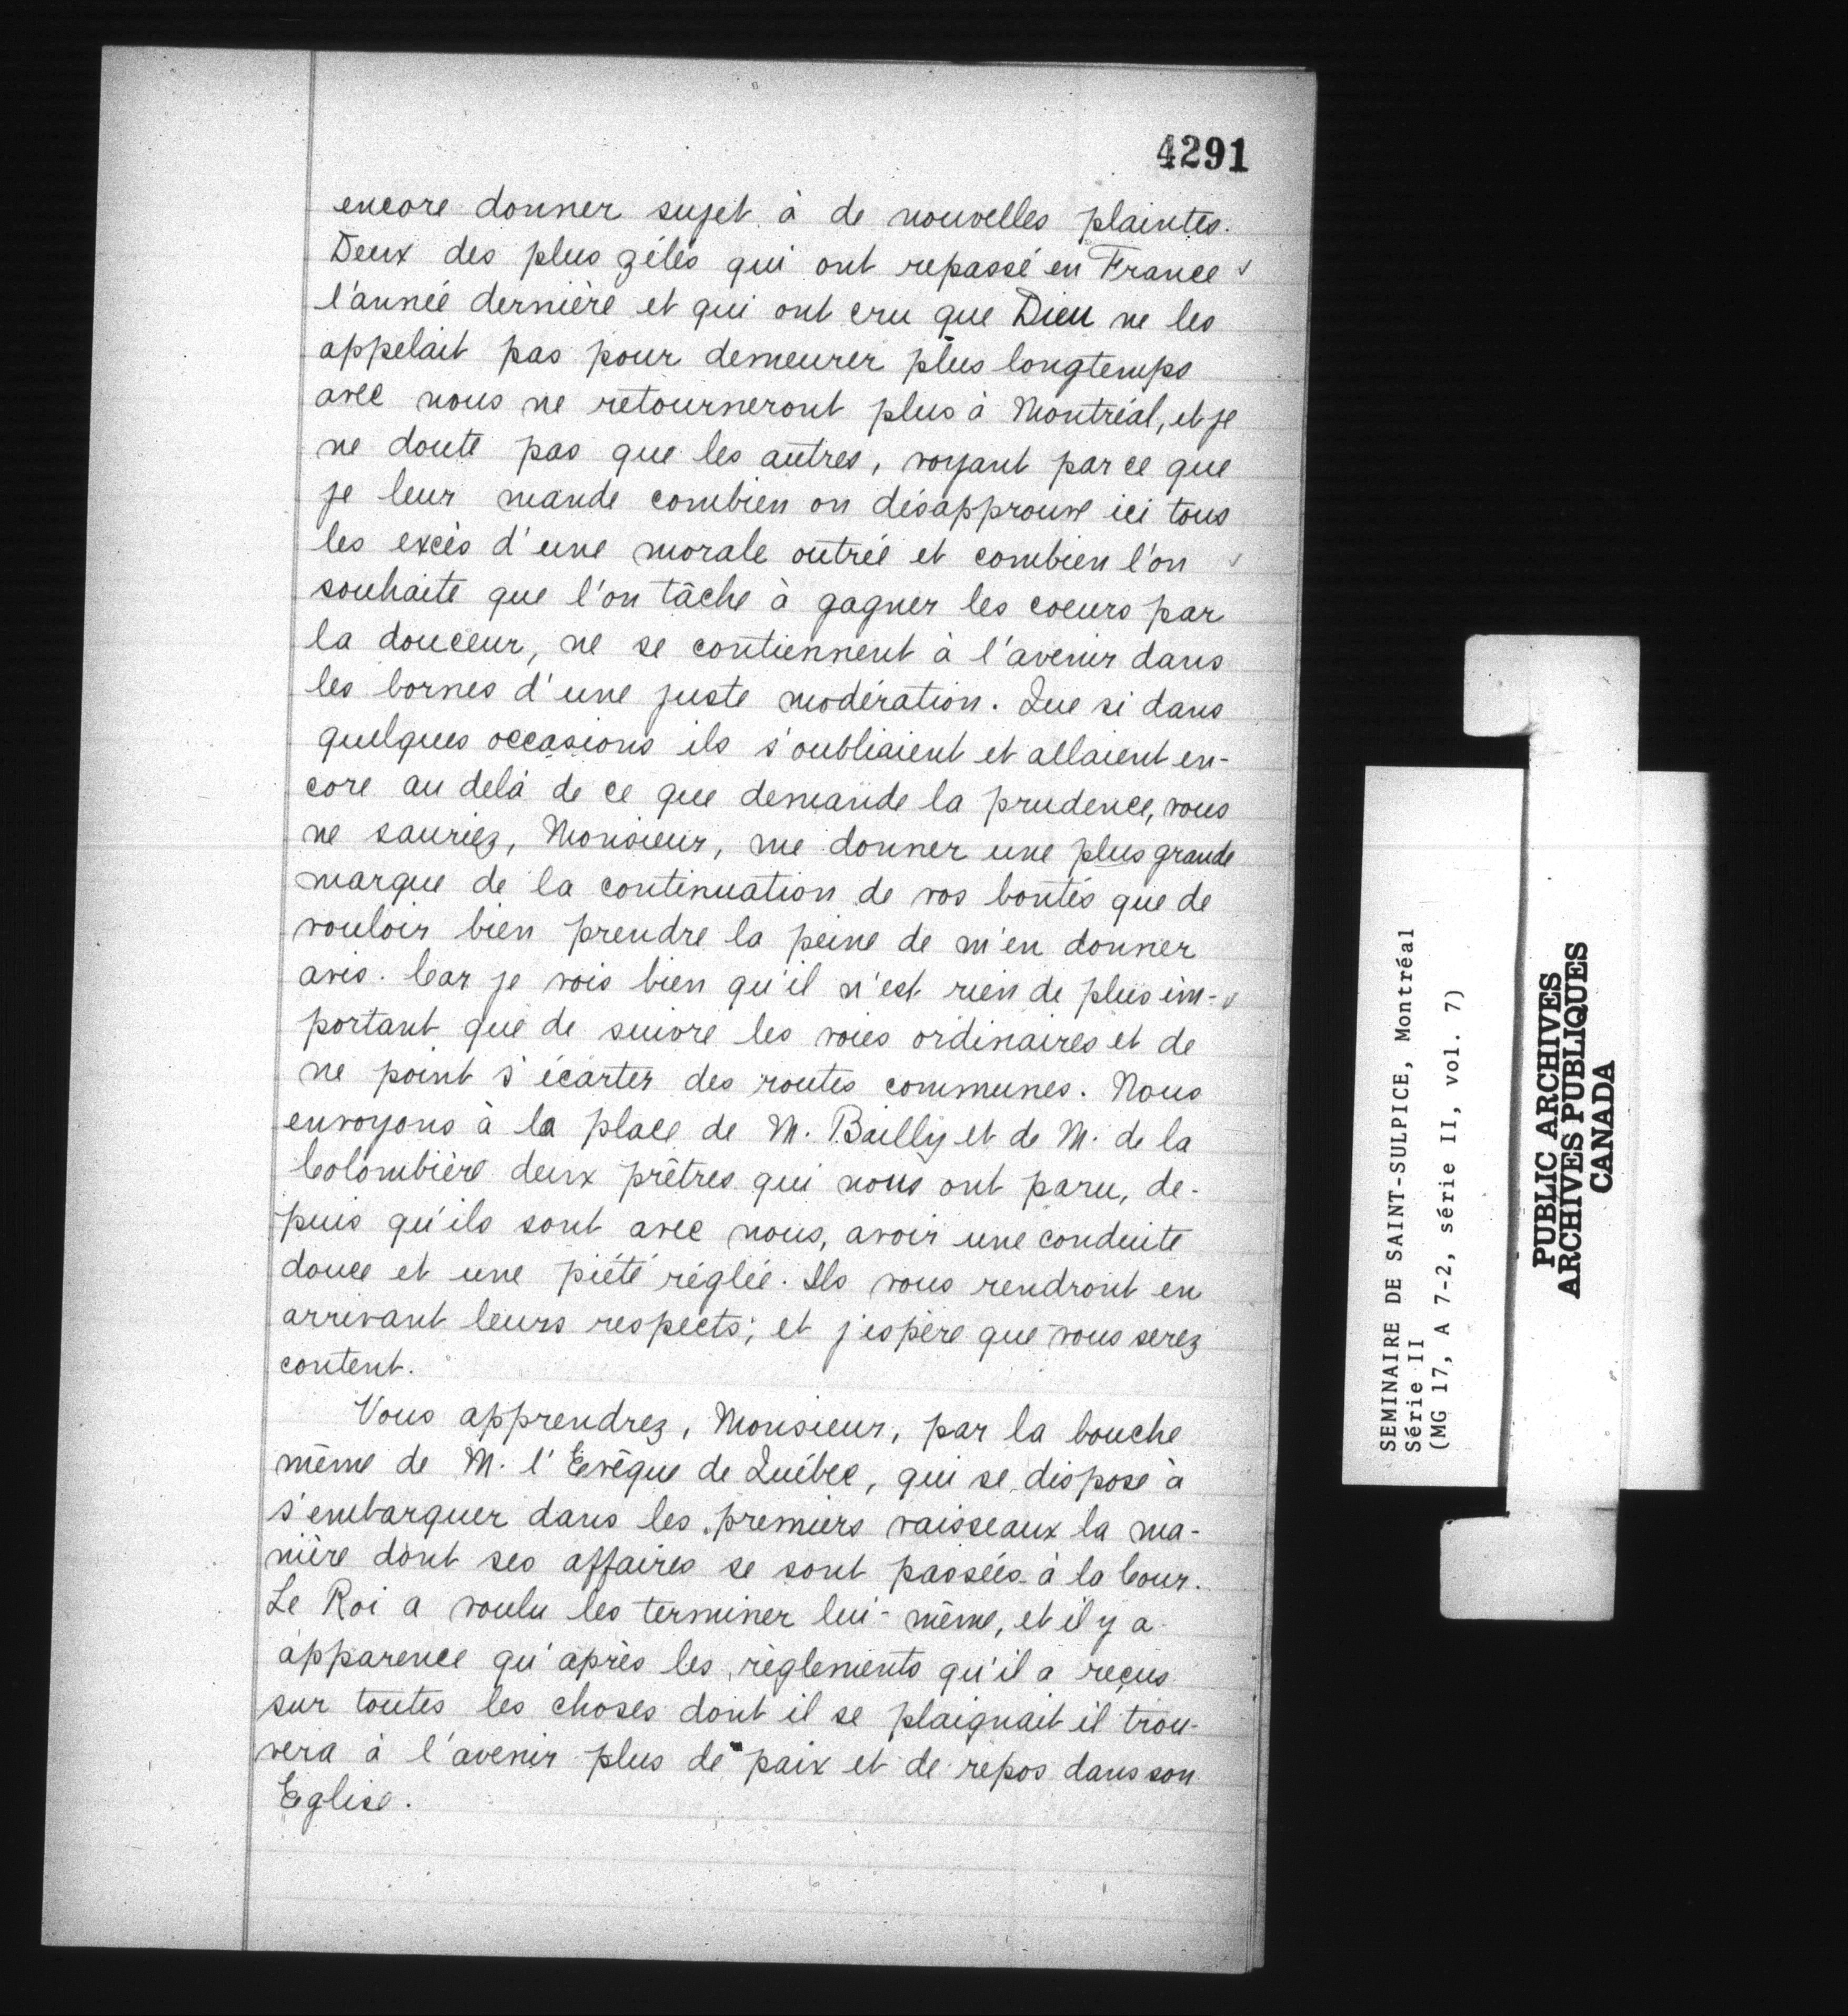 4291
encore donner sujet à de nouvelles plaintes.
Deux des plus zélés qui ont repassé en France
l'année dernière et qui ont cru que Dieu ne les
appelait pas pour demeurer plus longtemps
avec nous ne retourneront plus à Montréal, et je
ne doute pas que les autres, voyant par ce que
je leur mande combien on désapprouve ici tous
les excès d'une morale outrée et combien l'on
souhaite que l'on tâche à gagner les coeurs par
la douceur, ne se contiennent à l'avenir dans
les bornes d'une juste modération. Que si dans
quelques occasions ils s'oubliaient et allaient en-
core au delà de ce que demande la prudence, vous
ne sauriez, Monsieur, me donner une plus grande
marque de la continuation de vos bontés que de
vouloir bien prendre la peine de m'en donner
avis. Car je vois bien qu'il n'est rien de plus im-
portant que de suivre les voies ordinaires et de
ne point s'écarter des routes communes. Nous
envoyons à la place de M. Bailly et de M. de la
Colombière deux prêtres qui nous ont paru, de-
puis qu'ils sont avec nous, avoir une conduite
douce et une piété réglée. Ils vous rendront en
arrivant leurs respects; et j'espère que vous serez
content.
Vous apprendrez, Monsieur, par la bouche
même de M. l'Evêque de Québec, qui se dispose à
s'embarquer dans les premiers vaisseaux la ma-
nière dont ses affaires se sont passées à la Cour.
Le Roi a voulu les terminer lui-même, et il y a
apparence qu'après les règlements qu'il a reçus
sur toutes les choses dont il se plaignait il trou-
vera à l'avenir plus de paix et de repos dans son
Eglise.
SEMINAIRE DE SAINT-SULPICE, Montréal
Série II
(MG 17, A 7-2, série II, vol. 7)
PUBLIC ARCHIVES
ARCHIVES PUBLIQUES
CANADA